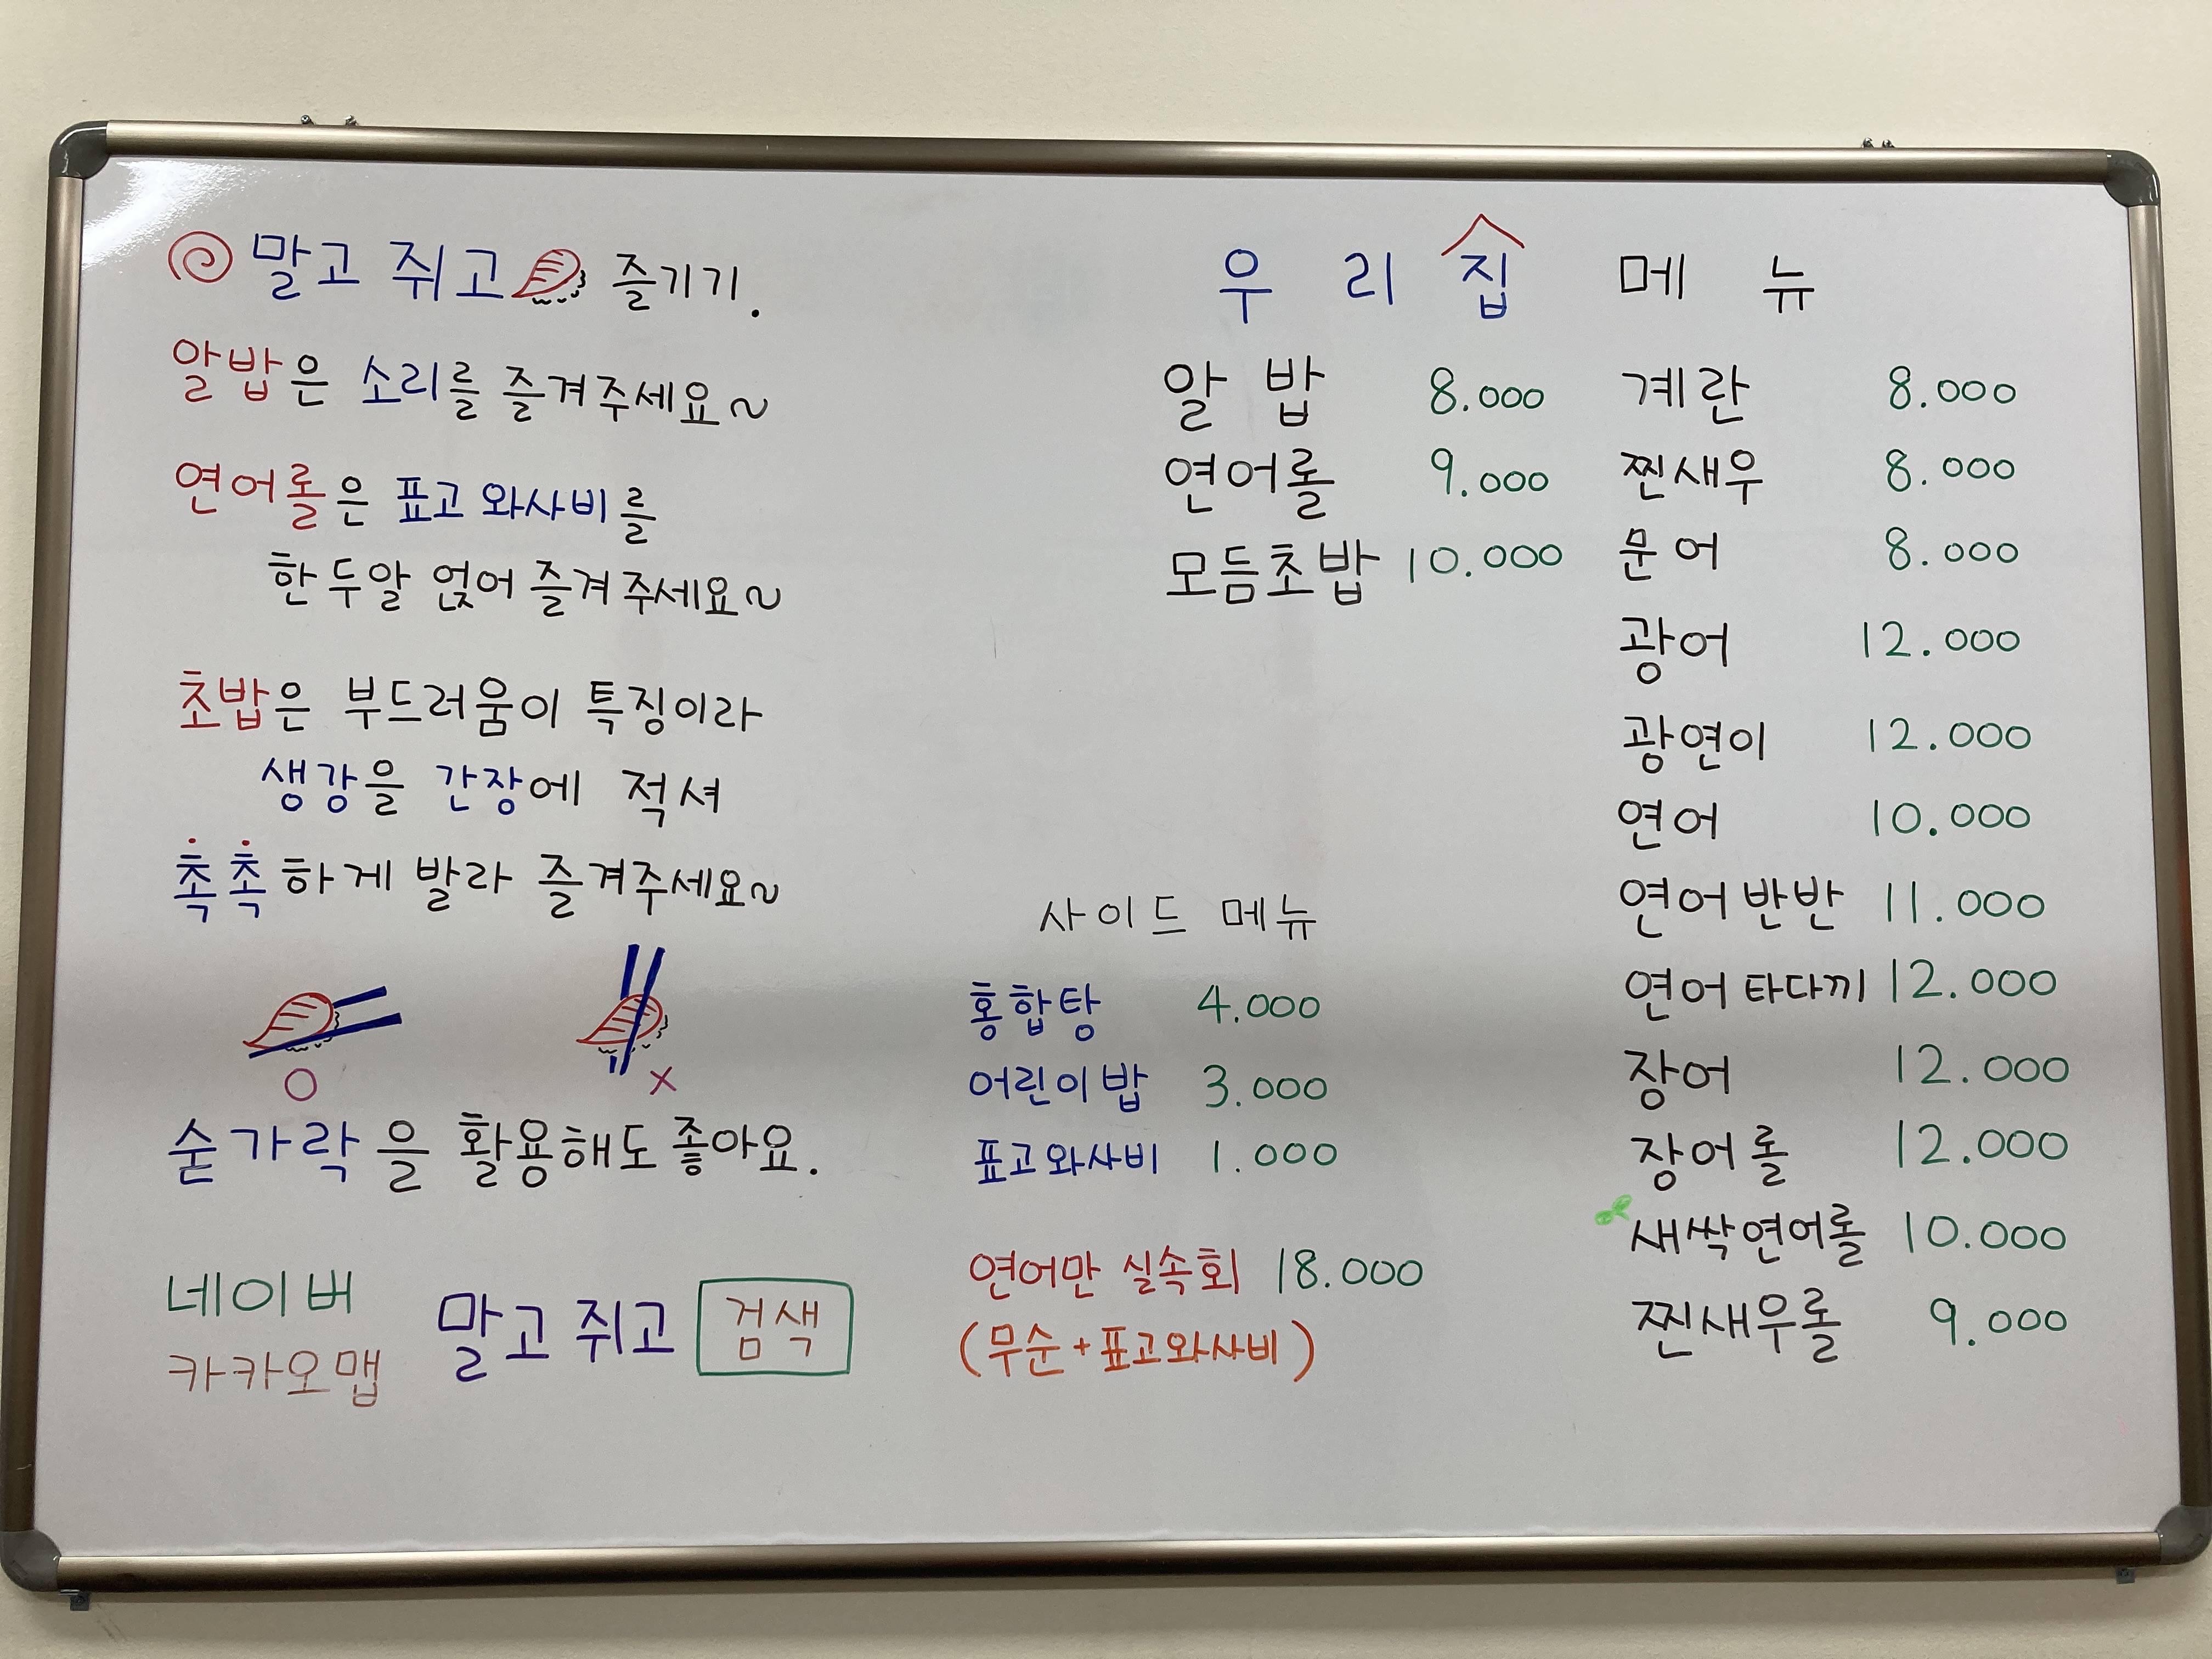 말고 쥐고 즐기기.
알밥은 소리를 즐겨주세요~
연어롤은 표고와사비를
한두알 얹어 즐겨주세요~
초밥은 부드러움이 특징이라
생강을 간장에 적셔
촉촉하게 발라 즐겨주세요~
O X
숟가락을 활용해도 좋아요.
네이버
카카오맵
말고 쥐고 검색
우리집 메뉴
알밥 8.000
연어롤 9.000
모듬초밥 10.000
계란 8.000
찐새우 8.000
문어 8.000
광어 12.000
광연이 12.000
연어 10.000
연어반반 11.000
연어타다끼 12.000
장어 12.000
장어롤 12.000
새싹연어롤 10.000
찐새우롤 9.000
사이드 메뉴
홍합탕 4.000
어린이밥 3.000
표고와사비 1.000
연어만 실속회 18.000
(무순+표고와사비)